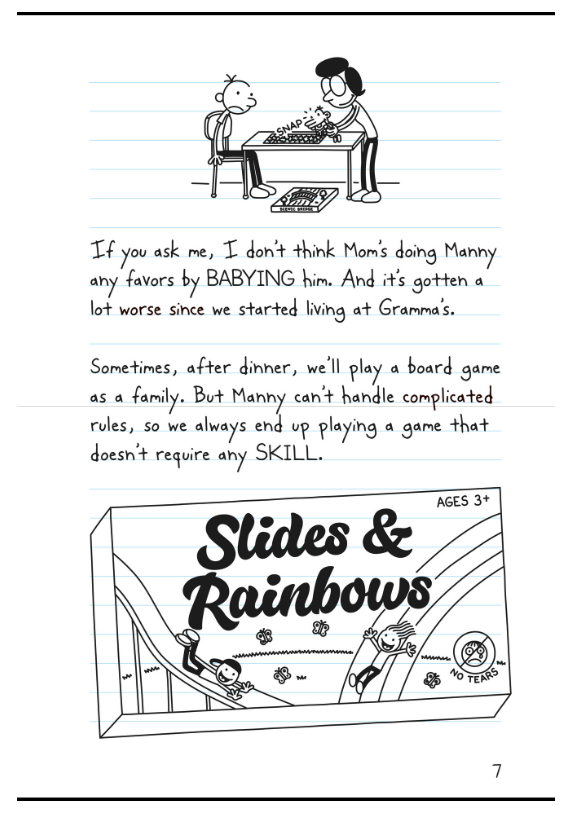 SNAP
If you ask me, I don't think Mom's doing Manny
any favors by BABYING him. And it's gotten a
lot worse since we started living at Gramma's.
Sometimes, after dinner, we'll play a board game
as a family. But Manny can't handle complicated
rules, so we always end up playing a game that
doesn't require any SKILL.
AGES 3+
Slides &
Rainbows
NO TEARS
7